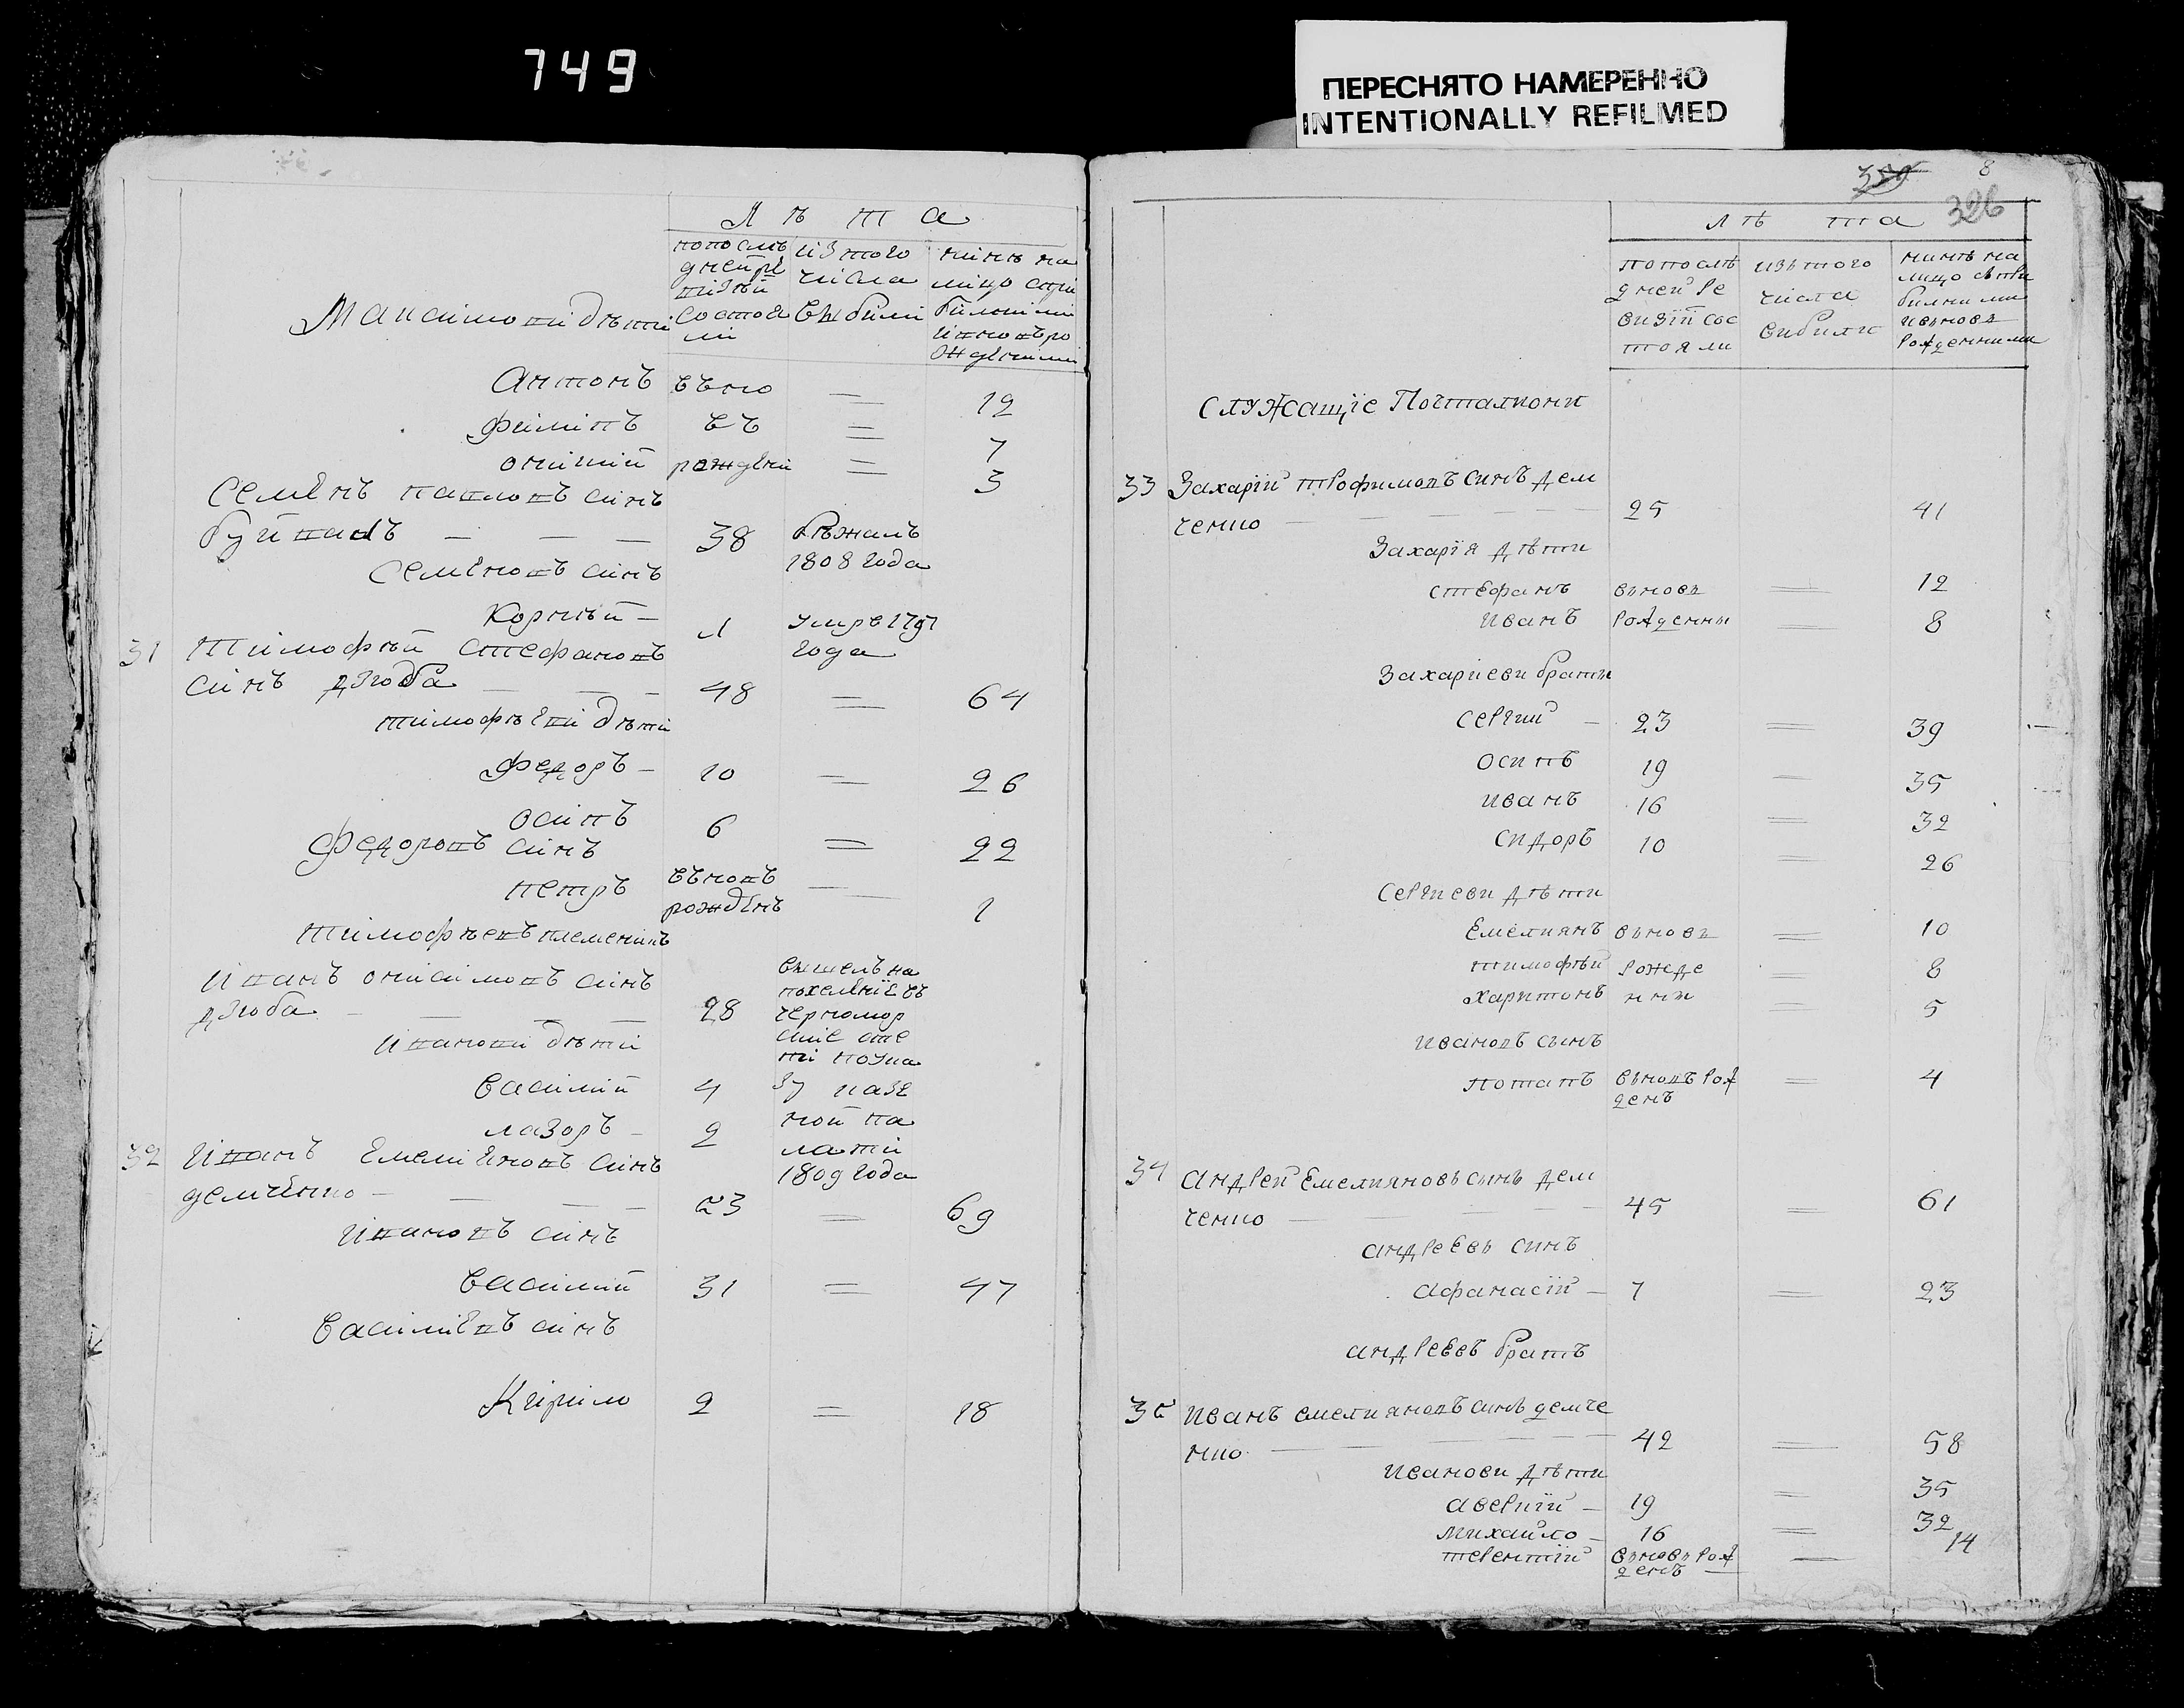 749
ПЕРЕСНЯТО НАМЕРЕННО
INTENTIONALLY REFILMED
Лѣта
по послѣ
дней ре
визїи
состоя
ли
изъ того
числа
выбыли
нинѣ на
лицо съ при
билими
и вновъ ро
жденними
Максимови дѣти
Антонъ въно 12
Филипъ въ 7
рождени 3
Семенъ павловъ синъ
38 бѣжалъ
1808 года
Семеновъ синъ
Корнѣй 1 умре 1797
года
31 Тимофѣй Стефановъ
синъ дзюба 48 64
тимофѣеви дѣти
Федоръ 10 26
Осипъ 6 22
Федоровъ синъ
петръ въновъ
рожденъ 1
Тимофѣевъ племеникъ
Иванъ онисимовъ синъ
дзюба 28 вышелъ на
поселенїе въ
черномор
скїе сте
пи по ука
зу казе
ной па
лати
1809 года
Иванови дѣти
Василий 4
лазоръ 2
32 Иванъ Емелияновъ синъ
демченко 53 69
Ивановъ синъ
Василий 31 47
Василиевъ синъ
Кирило 2 18
359 8
326
лѣта
по послѣ
дней ре
визїи сос
тояли
изъ того
числа
вибили
нинѣ на
лицо съ при
билими
и вновь
рожденними
Служащїе Почталиони
33 Захарїй трофимовъ синъ дем
ченко 25 41
Захарїя дѣти
стефанъ вьновь 12
иванъ рожденны 8
Захариеви братья
сергии 23 39
осипъ 19 35
иванъ 16 32
сидоръ 10 26
Сергиеви дѣти
Емелиянъ вьновь 10
тимофѣй рожде 8
харитонъ нни 5
ивановъ сынъ
потапъ вьновъ рож
денъ 4
34 Андрей Емелияновъ сынъ дем
ченко 45 61
андреевъ синъ
Афанасїй 7 23
андреевъ братъ
35 иванъ емелияновъ синъ демче
нко 42 58
иванови дѣти
аверкїй 19 35
михайло 16 32
терентїй вьновь рож
денъ 14